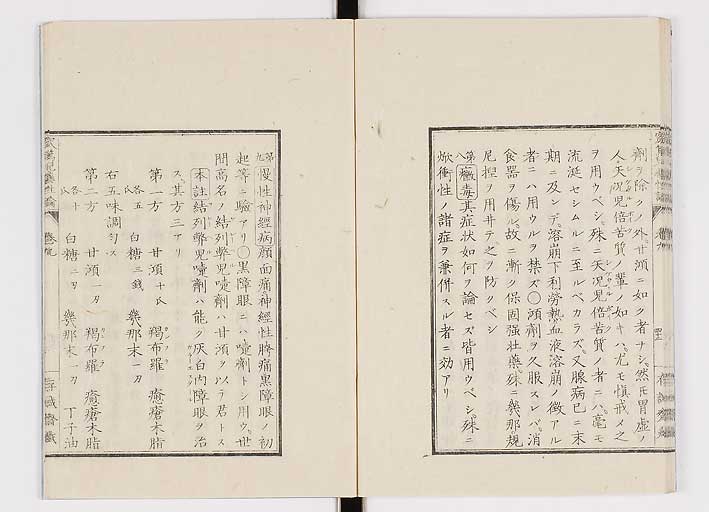 劑ヲ除クノ外甘汞ニ如ク者ナシ然𪜈胃虚ノ
人天況児倍苦質ノ輩ノ如キハ尤モ愼戒メ之
ヲ用ウベシ殊ニ天況児倍苦質ノ者ニハ毫モ
流涎セシムルニ至ルベカラズ又腺病已ニ末
期ニ及ンデ溶崩下利勞熱血液溶崩ノ徴アル
者ニハ用ウルヲ禁ズ〇汞劑ヲ久服スレバ消
食器ヲ傷ル故ニ漸ク保固强壮藥殊ニ幾那規
尼捏ヲ用井テ之ヲ防クベシ
第八 黴毒其症状如何ヲ論セズ皆用ウベシ殊ニ
焮衝性ノ諸症ヲ兼併スル者ニ効アリ
第九 慢性神經病顔面痛神經性胯痛黒障眼ノ初
起等ニ驗アリ〇黒障眼ニハ嚏劑トシ用ウ世
間高名ノ結列弊児嚏劑ハ甘汞ヲ以テ君トス
本註 結列弊児嚏劑ハ能ク灰白内障眼ヲ治
ス其方三アリ
第一方 甘汞十氏 羯布羅 癒瘡木脂
各五氏 白糖三錢 幾那末一刃
右五味調匀ス
第二方 甘汞一刃 羯布羅 癒瘡木脂
各十氏 白糖二刃 幾那末一刃 丁子油